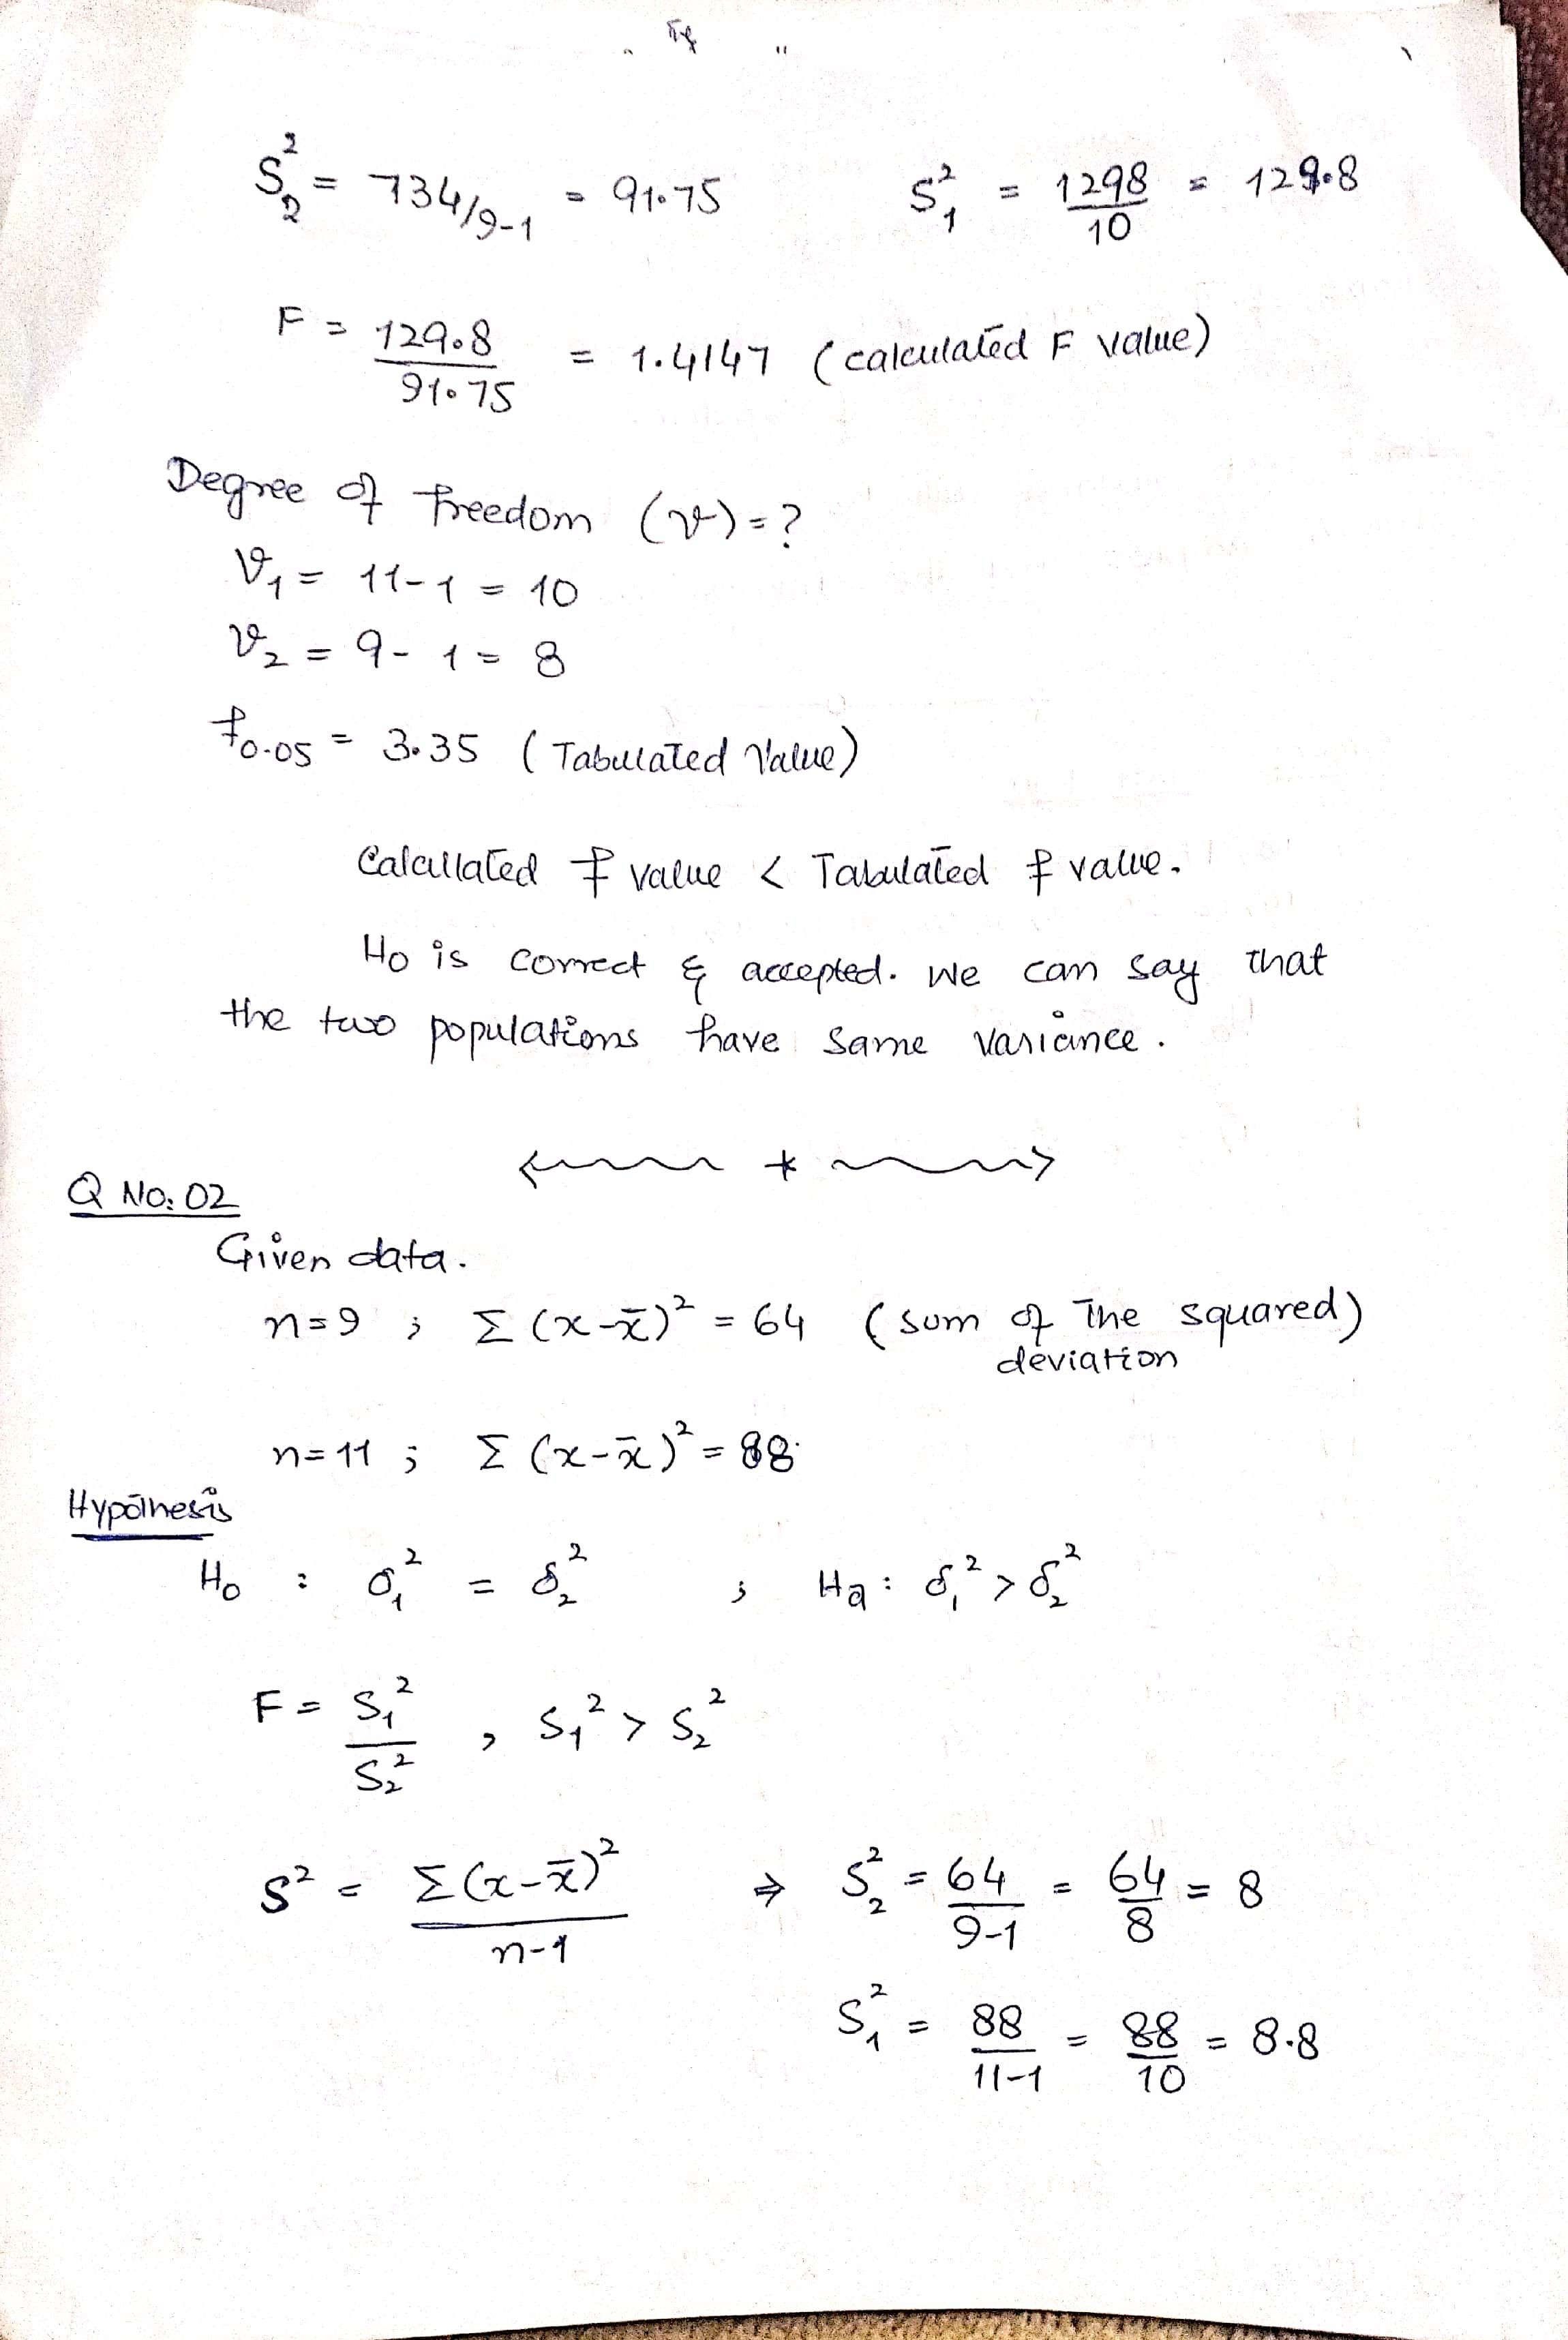 S₂² = 734/9-1 = 91.75    S₁² = 1298/10 = 129.8
F = 129.8/91.75 = 1.4147 (calculated F value)
Degree of freedom (v) = ?
v₁ = 11-1 = 10
v₂ = 9-1 = 8
f0.05 = 3.35 (Tabulated Value)
Calcullated f value < Tabulated f value.
Ho is correct & accepted. We can say that
the two populations have same variance.
Q No: 02
Given data.
n=9 ; Σ(x-x̄)² = 64 (sum of The squared)
deviation
n=11 ; Σ(x-x̄)² = 88
Hypothesis
Ho : σ₁² = δ₂² ; Ha : δ₁² > δ₂²
F = S₁²/S₂² , S₁² > S₂²
S² = Σ(x-x̄)²/n-1 ⇒ S₂² = 64/9-1 = 64/8 = 8
S₁² = 88/11-1 = 88/10 = 8.8